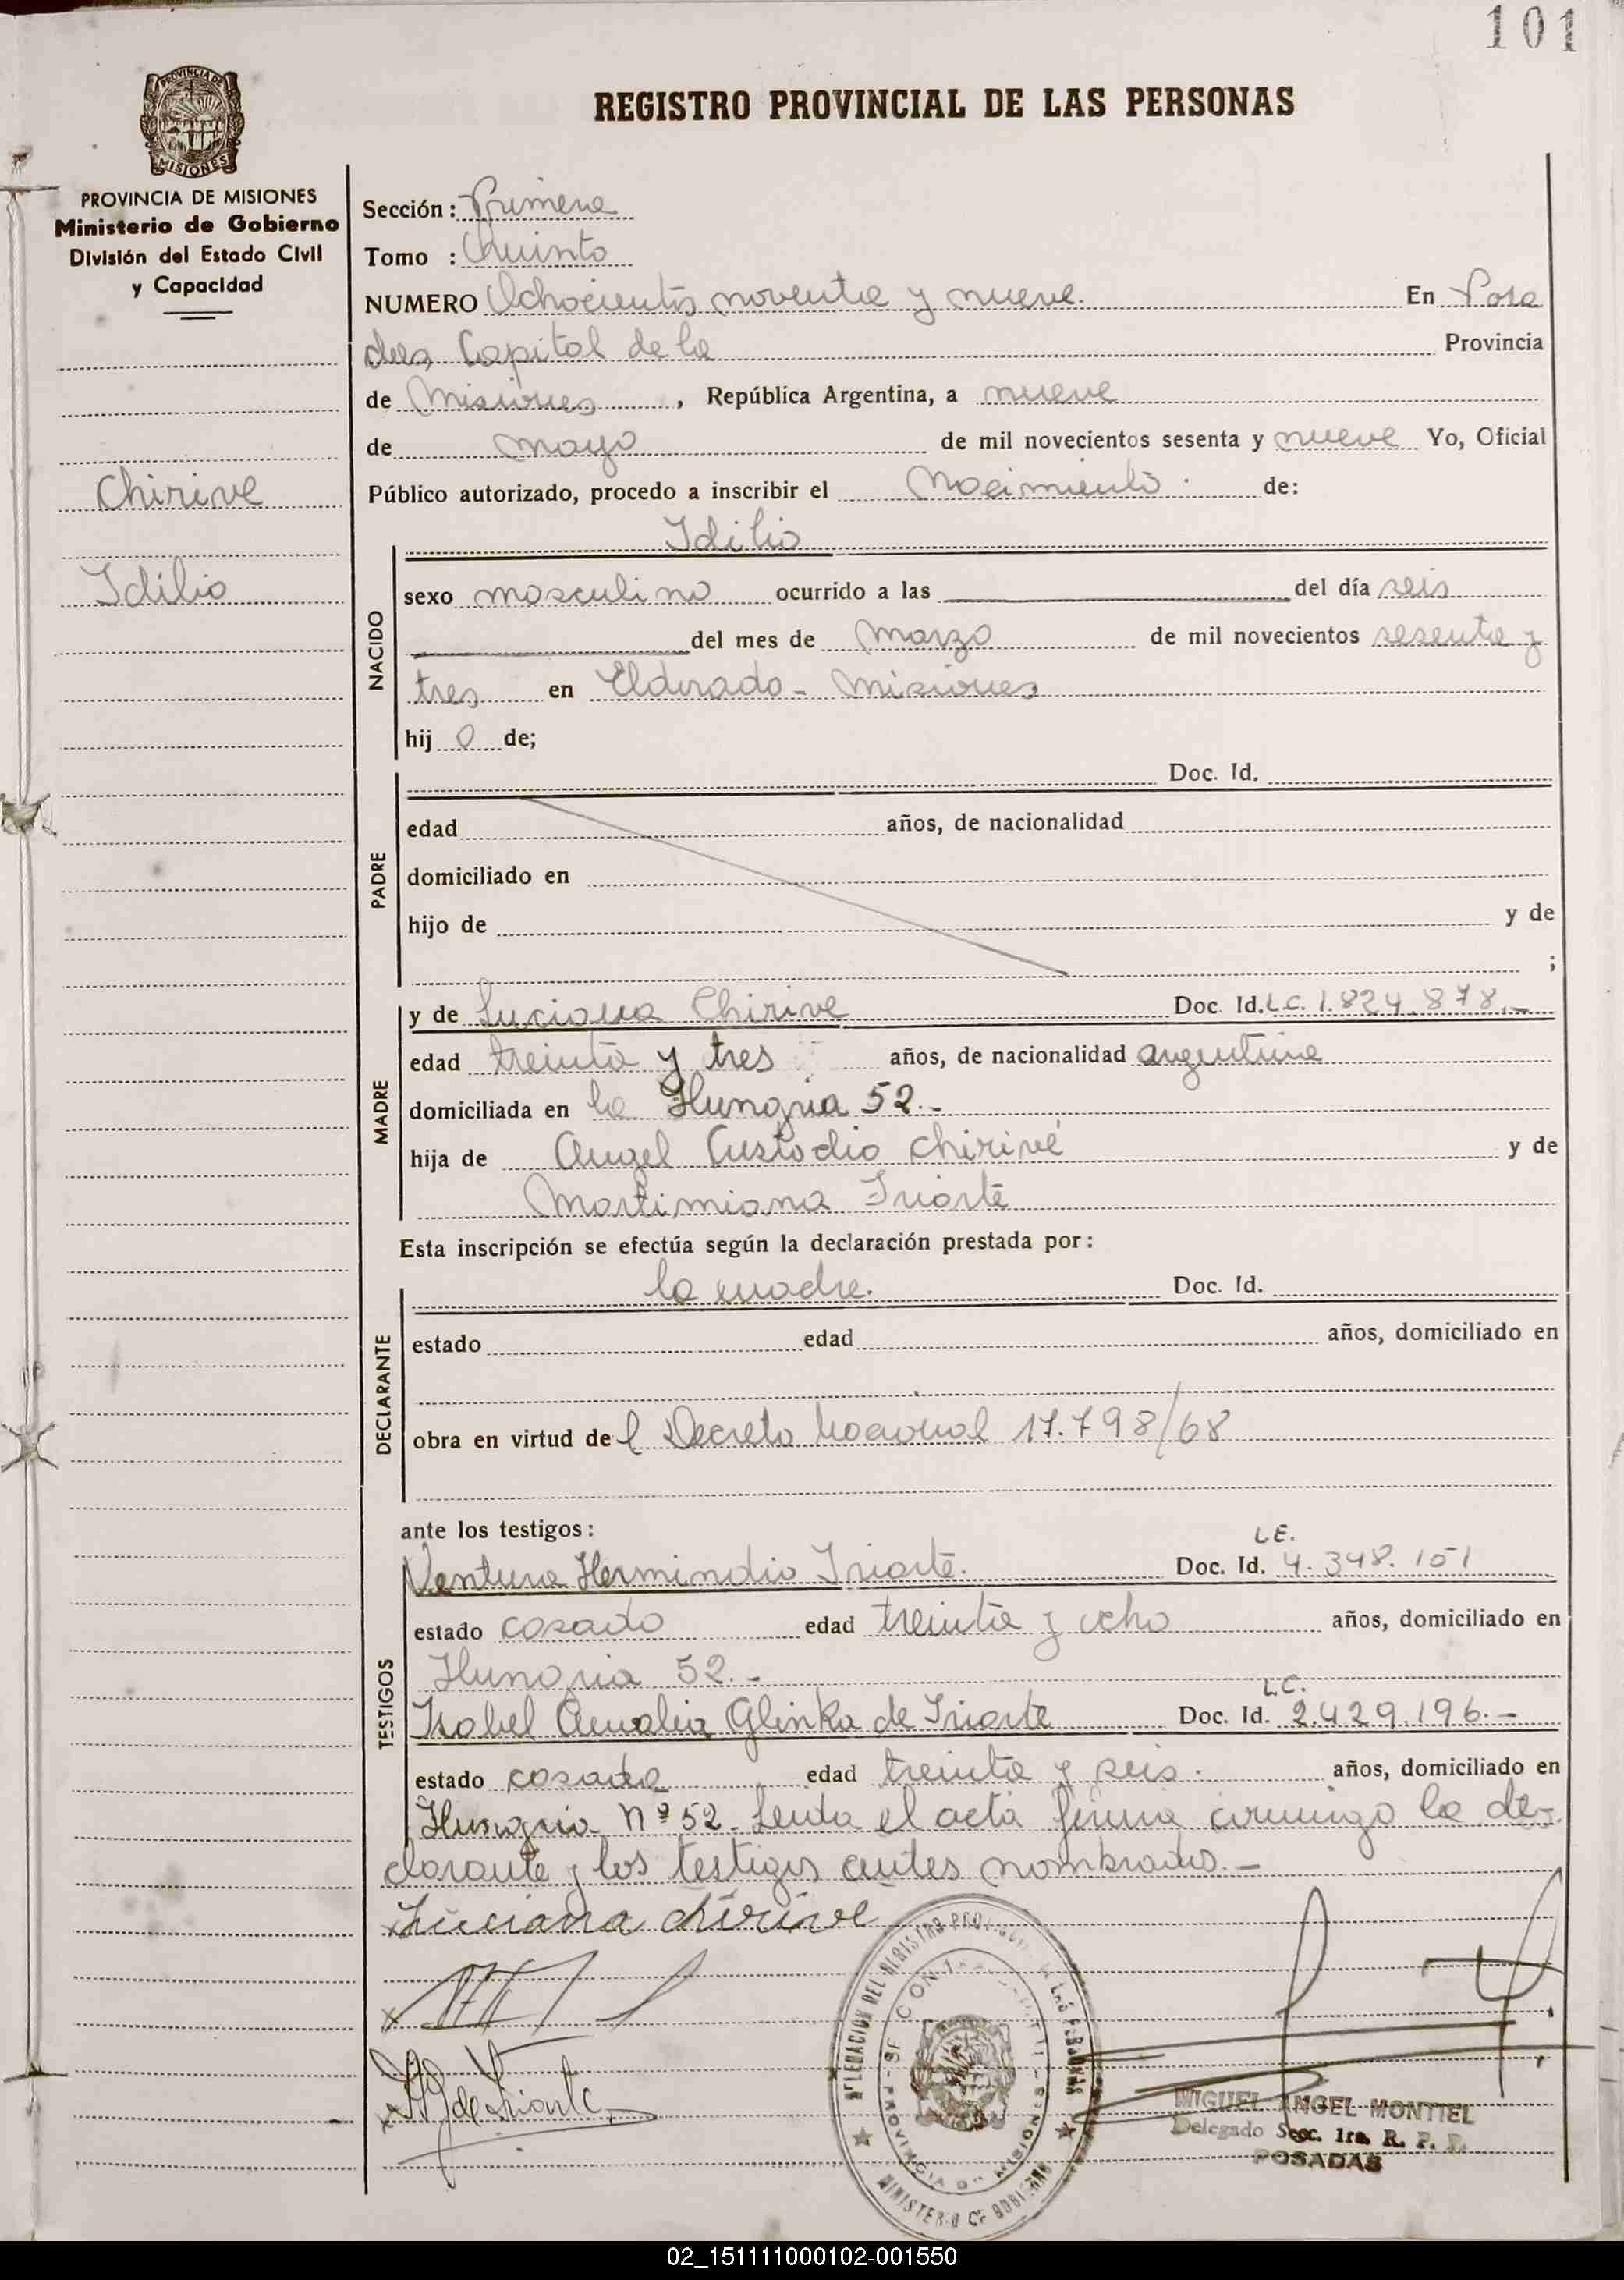 101
PROVINCIA DE
MISIONES
REGISTRO PROVINCIAL DE LAS PERSONAS
PROVINCIA DE MISIONES
Ministerio de Gobierno
División del Estado Civil
y Capacidad
Chirive
Idilio
Sección: Primera
Tomo : Quinto
NUMERO Ochocientos noventa y nueve. En Posa
das, Capital de la Provincia
de Misiones, República Argentina, a nueve
de mayo de mil novecientos sesenta y nueve Yo, Oficial
Público autorizado, procedo a inscribir el Nacimiento. de:
Idilio
NACIDO
sexo masculino ocurrido a las del día seis
del mes de Marzo de mil novecientos sesenta y
tres en Eldorado - Misiones
hij o de;
PADRE
Doc. Id.
edad años, de nacionalidad
domiciliado en
hijo de y de
;
MADRE
y de Luciana Chirive Doc. Id. L.C. 1.824.878.-
edad treinta y tres años, de nacionalidad argentina
domiciliada en la Hungria 52.-
hija de Angel Custodio Chirivé y de
Martimiana Iriarte
Esta inscripción se efectúa según la declaración prestada por:
DECLARANTE
la madre. Doc. Id.
estado edad años, domiciliado en
obra en virtud del Decreto Nacional 17.798/68
ante los testigos:
TESTIGOS
L.E.
Ventura Hermindio Iriarte. Doc. Id. 4.348.151
estado casado edad treinta y ocho años, domiciliado en
Hungria 52.-
L.C.
Isabel Amalia Glinka de Iriarte Doc. Id. 2.429.196.-
estado casada edad treinta y seis. años, domiciliado en
Hungria Nº 52. Leida el acta firma conmigo la de-
clarante y los testigos antes nombrados.-
x Luciana chirive
de Iriarte
DELEGACION DEL REGISTRO PROVINCIAL DE LAS PERSONAS
PROVINCIA DE MISIONES
MINISTERIO DE GOBIERNO
MIGUEL ANGEL MONTIEL
Delegado Secc. 1ra. R. P. P.
POSADAS
02_151111000102-001550